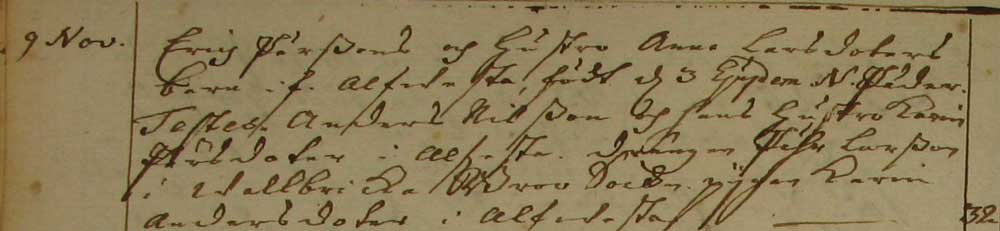 9 Nov. Erich Pärssons och Hustro Anna Larsdoters
barn i f. Alfvesta, födt d. 3 Ejusdem N. Peder.
Testes. Anders Nilsson och hans Hustro Karin
Pärsdoter i Alvesta. drengen Pehr Larsson
i Wallbricka Socken. pigan Karin
Andersdoter i Alfvesta 32